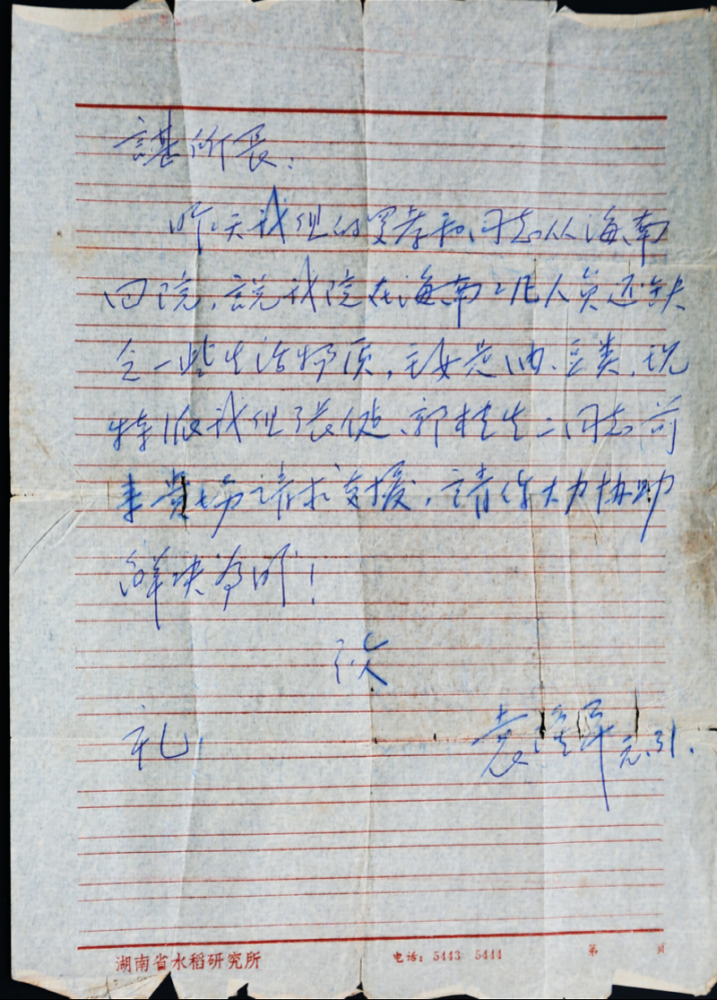 谌所长：
昨天我组的罗孝和同志从海南
回院，说我院在海南工作人员还缺
乏一些生活物质，主要是油、豆类，现
特派我组张健、郭桂生二同志前
来贵场请求支援，请你大力协助
解决为盼！
致
礼！
袁隆平 元.31.
湖南省水稻研究所
电话：5443 5444
第 页